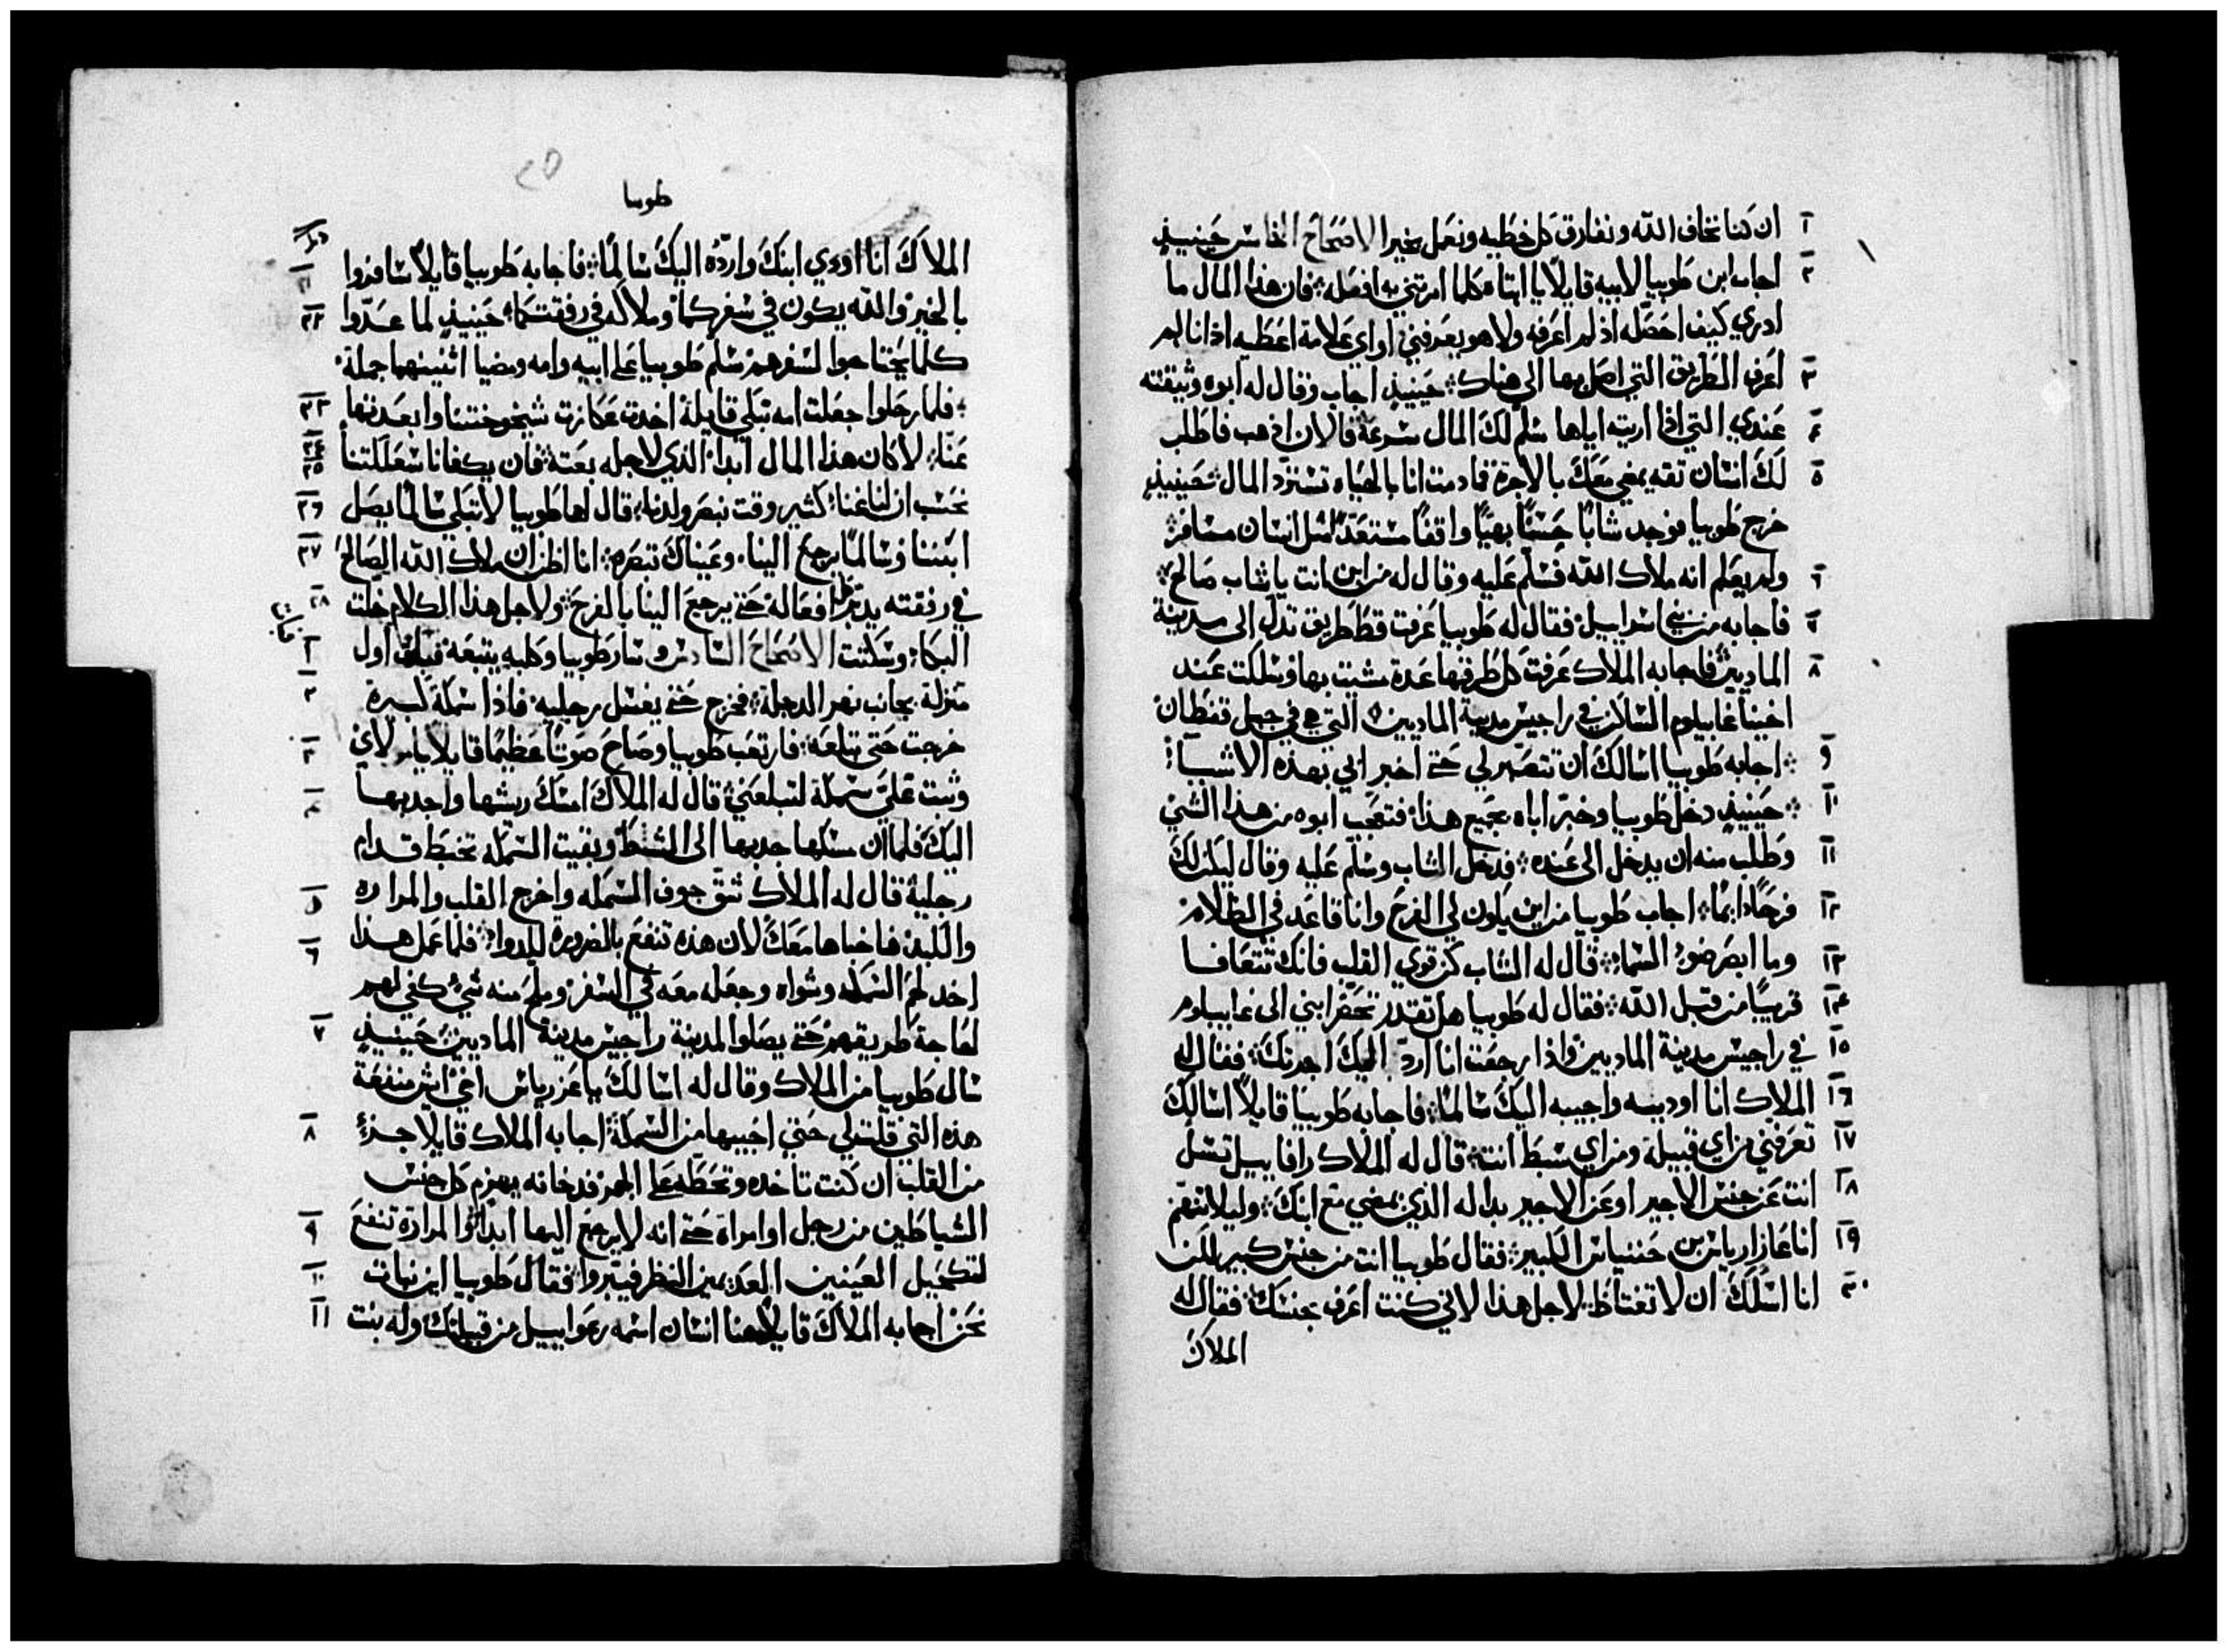 ان كنا نخاف الله ونفارق كل خطيه ونعمل بخير الاصحاح الخامس حينيذٍ ١
اجاب ابن طوبيا لابيه قايلاً يا ابتاه كلما امرتني به افعله فان هذا المال ما ٢
ادري كيف احصله اذ لم اعرفه ولا هو يعرفني او اي علامة اعطيه اذ انا لم
اعرف الطريق التي اصل بها الى هناك حينيذٍ اجاب وقال له ابوه وثيقته ٣
عندي التي اذا اريته اياها سلم لك المال بسرعة فالان اذهب فاطلب ٤
لك انسان ثقه يمضي معك بالاجرة فما دمت انا بالحياه تسترد المال حينيذٍ ٥
خرج طوبيا فوجد شابًا حسنًا بهيًا واقفًا مستعدًا مثل انسان مسافر
ولم يعلم انه ملاك الله فسلم عليه وقال له من اين انت يا شاب صالح ٦
فاجابه من بني اسراييل فقال له طوبيا عرفت قط طريق تدل الى مدينة ٧
الماديين فاجابه الملاك عرفت كل طرقها عدة مشيت بها وسكنت عند ٨
اخينا غابيلوم الساكن في راجيس مدينة الماديين التي هي في جبل تفطان
اجابه طوبيا اسالك ان تتصبر لي حتى اخبر ابي بهذه الاشيا ٩
حينيذٍ دخل طوبيا وخبر اباه بجميع هذا فتعجب ابوه من هذا الشي ١٠
وطلب منه ان يدخل الى عنده فدخل الشاب وسلم عليه وقال ليكن لك ١١
فرحًا دايمًا اجاب طوبيا من اين يكون لي الفرح وانا قاعد في الظلام ١٢
وما ابصر ضوء السماء قال له الشاب كن قوي القلب فانك تتعافا ١٣
قريبًا من قبل الله فقال له طوبيا هل تقدر تحضر ابني الى غابيلوم ١٤
في راجيس مدينة الماديين واذا رجعت انا ارد اليك اجرتك فقال له ١٥
الملاك انا اوديه واجيبه اليك سالمًا فاجابه طوبيا قايلاً اسالك ١٦
تعرفني من اي قبيلة ومن اي سبط انت قال له الملاك رافاييل تسل ١٧
انت عن جنس الاجير او عن الاجير بداله الذي يمضي مع ابنك وليلا تتهم ١٨
انا عازارياس بن حننياس الكبير فقال طوبيا انت من جنس كبير لكن ١٩
انا اسلك ان لا تغتاظ لاجل هذا لاني كنت اعرف بجنسك فقال له ٢٠
الملاك
٢٥
طوبيا
الملاك انا اودي ابنك وارده اليك سالمًا فاجابه طوبيا قايلاً سافروا ٢١
بالخير والله يكون في سفركما وملاكه في رفقتكما حينيذٍ لما عدوا ٢٢
كلما يحتاجوا لسفرهم سلم طوبيا على ابيه وامه ومضيا اثنينهما جملة
فلما رحلوا جعلت امه تبكي قايلة اخدت عكازت شيخوختنا وابعدتها ٢٣
عنا لا كان هذا المال ابدا الذي لاجله بعته فان يكفانا ٢٤ ٢٥
نحسب ان لنا غنا كثير وقت نبصر ولدنا قال لها طوبيا لا تبكي سالمًا يصل ٢٦
ابننا وسالمًا يرجع الينا وعيناك تبصره انا اظن ان ملاك الله الصالح ٢٧
في رفقته يدبر كل افعاله حتى يرجع الينا بالفرح ولاجل هذا الكلام خلت ٢٨
البكاء وسكتت الاصحاح السادس وسار طوبيا وكلبه يتبعه فبات اول ١
منزلة بجانب نهر الدجلة فخرج حتى يغسل رجليه فاذا سمكة كبيرة ٢
خرجت حتى تبلعه فارتعب طوبيا وصاح صوتًا عظيمًا قايلاً يا مولاي ٣
وثبت علي سمكة لتبلعني قال له الملاك امسك ريشها واجدبها ٤
اليك فلما ان مسكها جدبها الى الشط وبقيت السمكه تختبط قدام
رجليه قال له الملاك شق جوف السمكه واخرج القلب والمراره ٥
والكبد فاخباها معك لان هذه تنفع بالضروره للدوا فلما عمل هذا ٦
اخد لحم السمكه وشواه وجعله معه في السفر وملح منه شي كفي لهم
لحاجة طريقهم حتى يصلوا لمدينة راجيس مدينة الماديين حينيذٍ ٧
سال طوبيا من الملاك وقال له اسالك يا عزرياس اخي ايش منفعة
هذه التي قلت لي حتى اجيبها من السمكة اجابه الملاك قايلاً جزء ٨
من القلب ان كنت تاخده وتحطه على الجمر فدخانه يهزم كل جنس
الشياطين من رجل او امراة حتى انه لا يرجع اليها ابدا والمرارة تنفع ٩
لتكحيل العينين العديمين النظر فيبروا فقال طوبيا اين نبات ١٠
نحن اجابه الملاك قايلاً هنا انسان اسمه رعواييل من قبيلتك وله بنت ١١